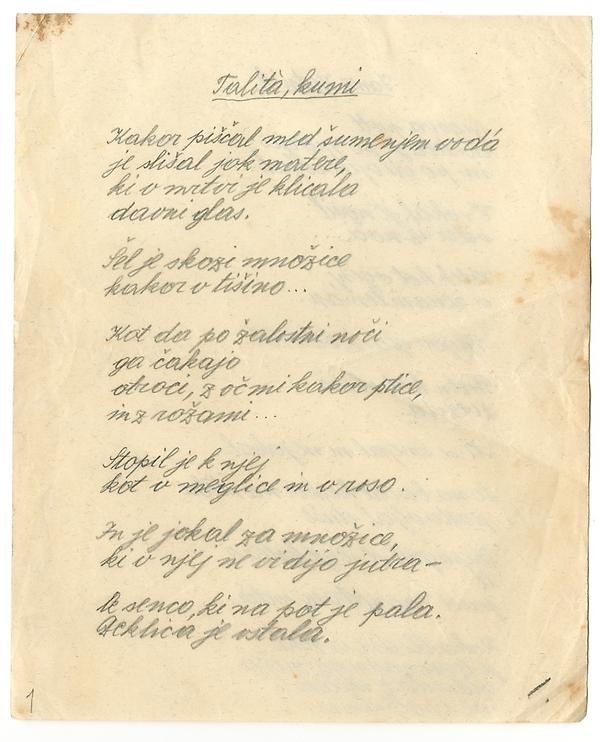 Talità, kumi
Kakor piščal med šumenjem vodá
je slišal jok matere,
ki v mrtvi je klicala
davni glas.
Šel je skozi množice
kakor v tišino...
Kot da po žalostni noči
ga čakajo
otroci, z očmi kakor ptice,
in z rožami...
Stopil je k njej
kot v meglice in v roso.
In je jokal za množice,
ki v njej ne vidijo jutra –
le senco, ki na pot je pala.
Deklica je vstala.
1